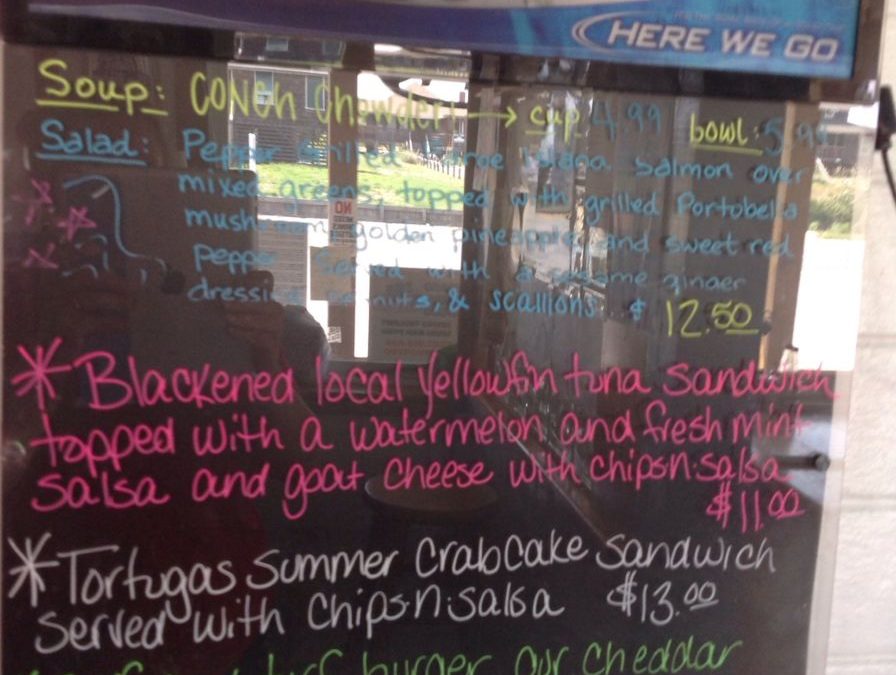 HERE WE GO
Soup: Conch Chowder! → cup 4.99 bowl: 5.99
Salad: Pepper grilled Island Salmon over
mixed greens, topped with grilled Portobella
mushroom, golden pineapple, and sweet red
pepper served with a sesame ginger
dressing, nuts, & scallions. $ 12.50
*Blackened local yellowfin tuna sandwich
topped with a watermelon and fresh mint
salsa and goat cheese with chipsn.salsa
$11.00
*Tortugas Summer CrabCake Sandwich
Served with Chipsn.salsa $13.00
burger our cheddar